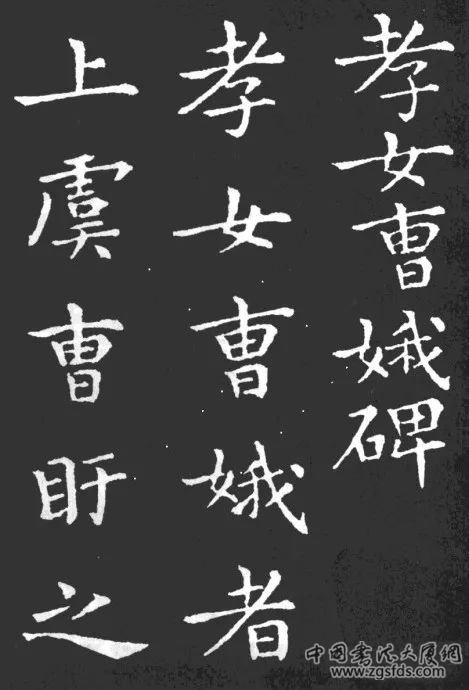 孝女曹娥碑
孝女曹娥者
上虞曹盱之
中國書法大展網
www.zgsfds.com